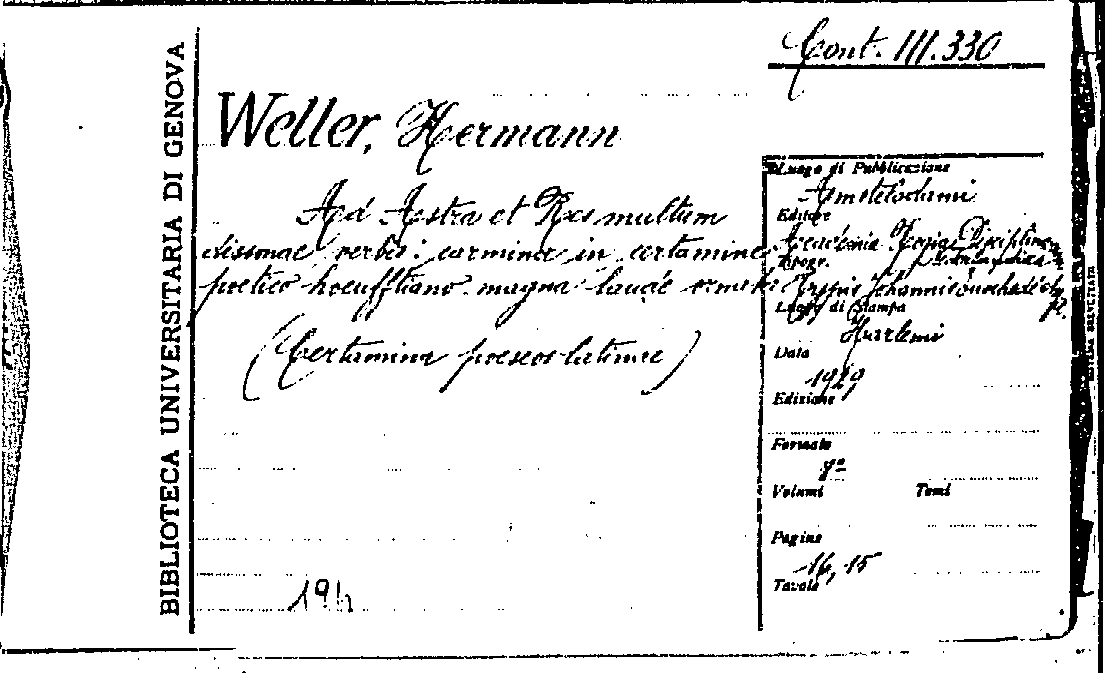 Cont. III.330
BIBLIOTECA UNIVERSITARIA DI GENOVA
Weller, Hermann
Ad Astra et Res multum
dissonae verbis: carmina in certamine
poetico hoeufftiano magna laude ornata
(Certamina poeseos latinae)
Luogo di Pubblicazione
Amstelodami
Editore
Academia Regia Disciplin.
Tipogr.
Typis Johannis Enschedé et f.
Luogo di Stampa
Harlemi
Data
1929
Edizione
Formato
8º
Volumi Tomi
Pagine
16, 15
Tavole
194